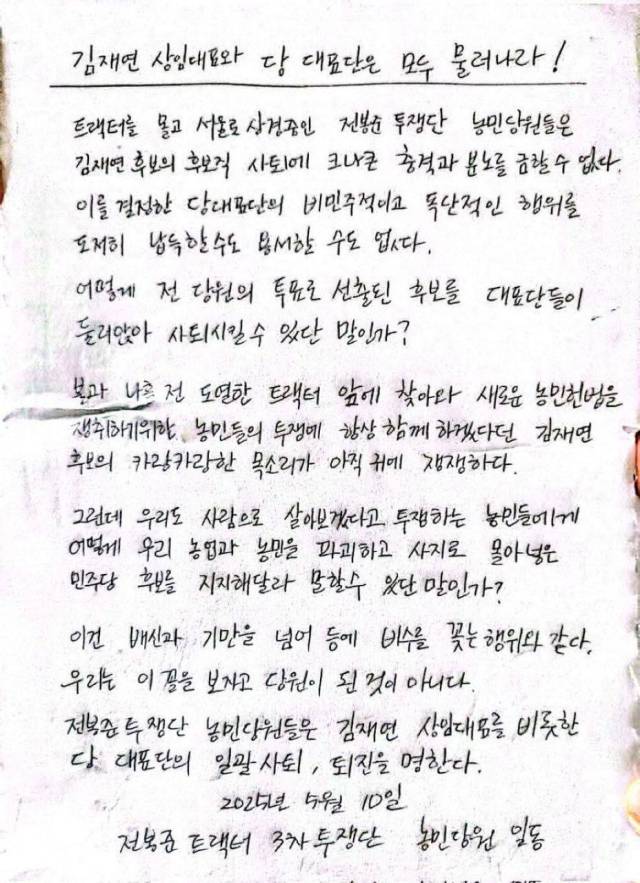 김재연 상임대표와 당 대표단은 모두 물러나라!
트랙터를 몰고 서울로 상경중인 전봉준 투쟁단 농민당원들은
김재연 후보의 후보직 사퇴에 크나큰 충격과 분노를 금할 수 없다.
이를 결정한 당대표단의 비민주적이고 독단적인 행위를
도저히 납득할수도 용서할 수도 없다.
어떻게 전 당원의 투표로 선출된 후보를 대표단들이
둘러앉아 사퇴시킬수 있단 말인가?
불과 나흘 전 도열한 트랙터 앞에 찾아와 새로운 농민헌법을
쟁취하기위한 농민들의 투쟁에 항상 함께 하겠다던 김재연
후보의 카랑카랑한 목소리가 아직 귀에 쟁쟁하다.
그런데 우리도 사람으로 살아보겠다고 투쟁하는 농민들에게
어떻게 우리 농업과 농민을 파괴하고 사지로 몰아넣은
민주당 후보를 지지해달라 말할수 있단 말인가?
이건 배신과 기만을 넘어 등에 비수를 꽂는 행위와 같다.
우리는 이 꼴을 보자고 당원이 된 것이 아니다.
전봉준투쟁단 농민당원들은 김재연 상임대표를 비롯한
당 대표단의 일괄사퇴, 퇴진을 명한다.
2025년 5월 10일
전봉준 트랙터 3차투쟁단 농민당원 일동